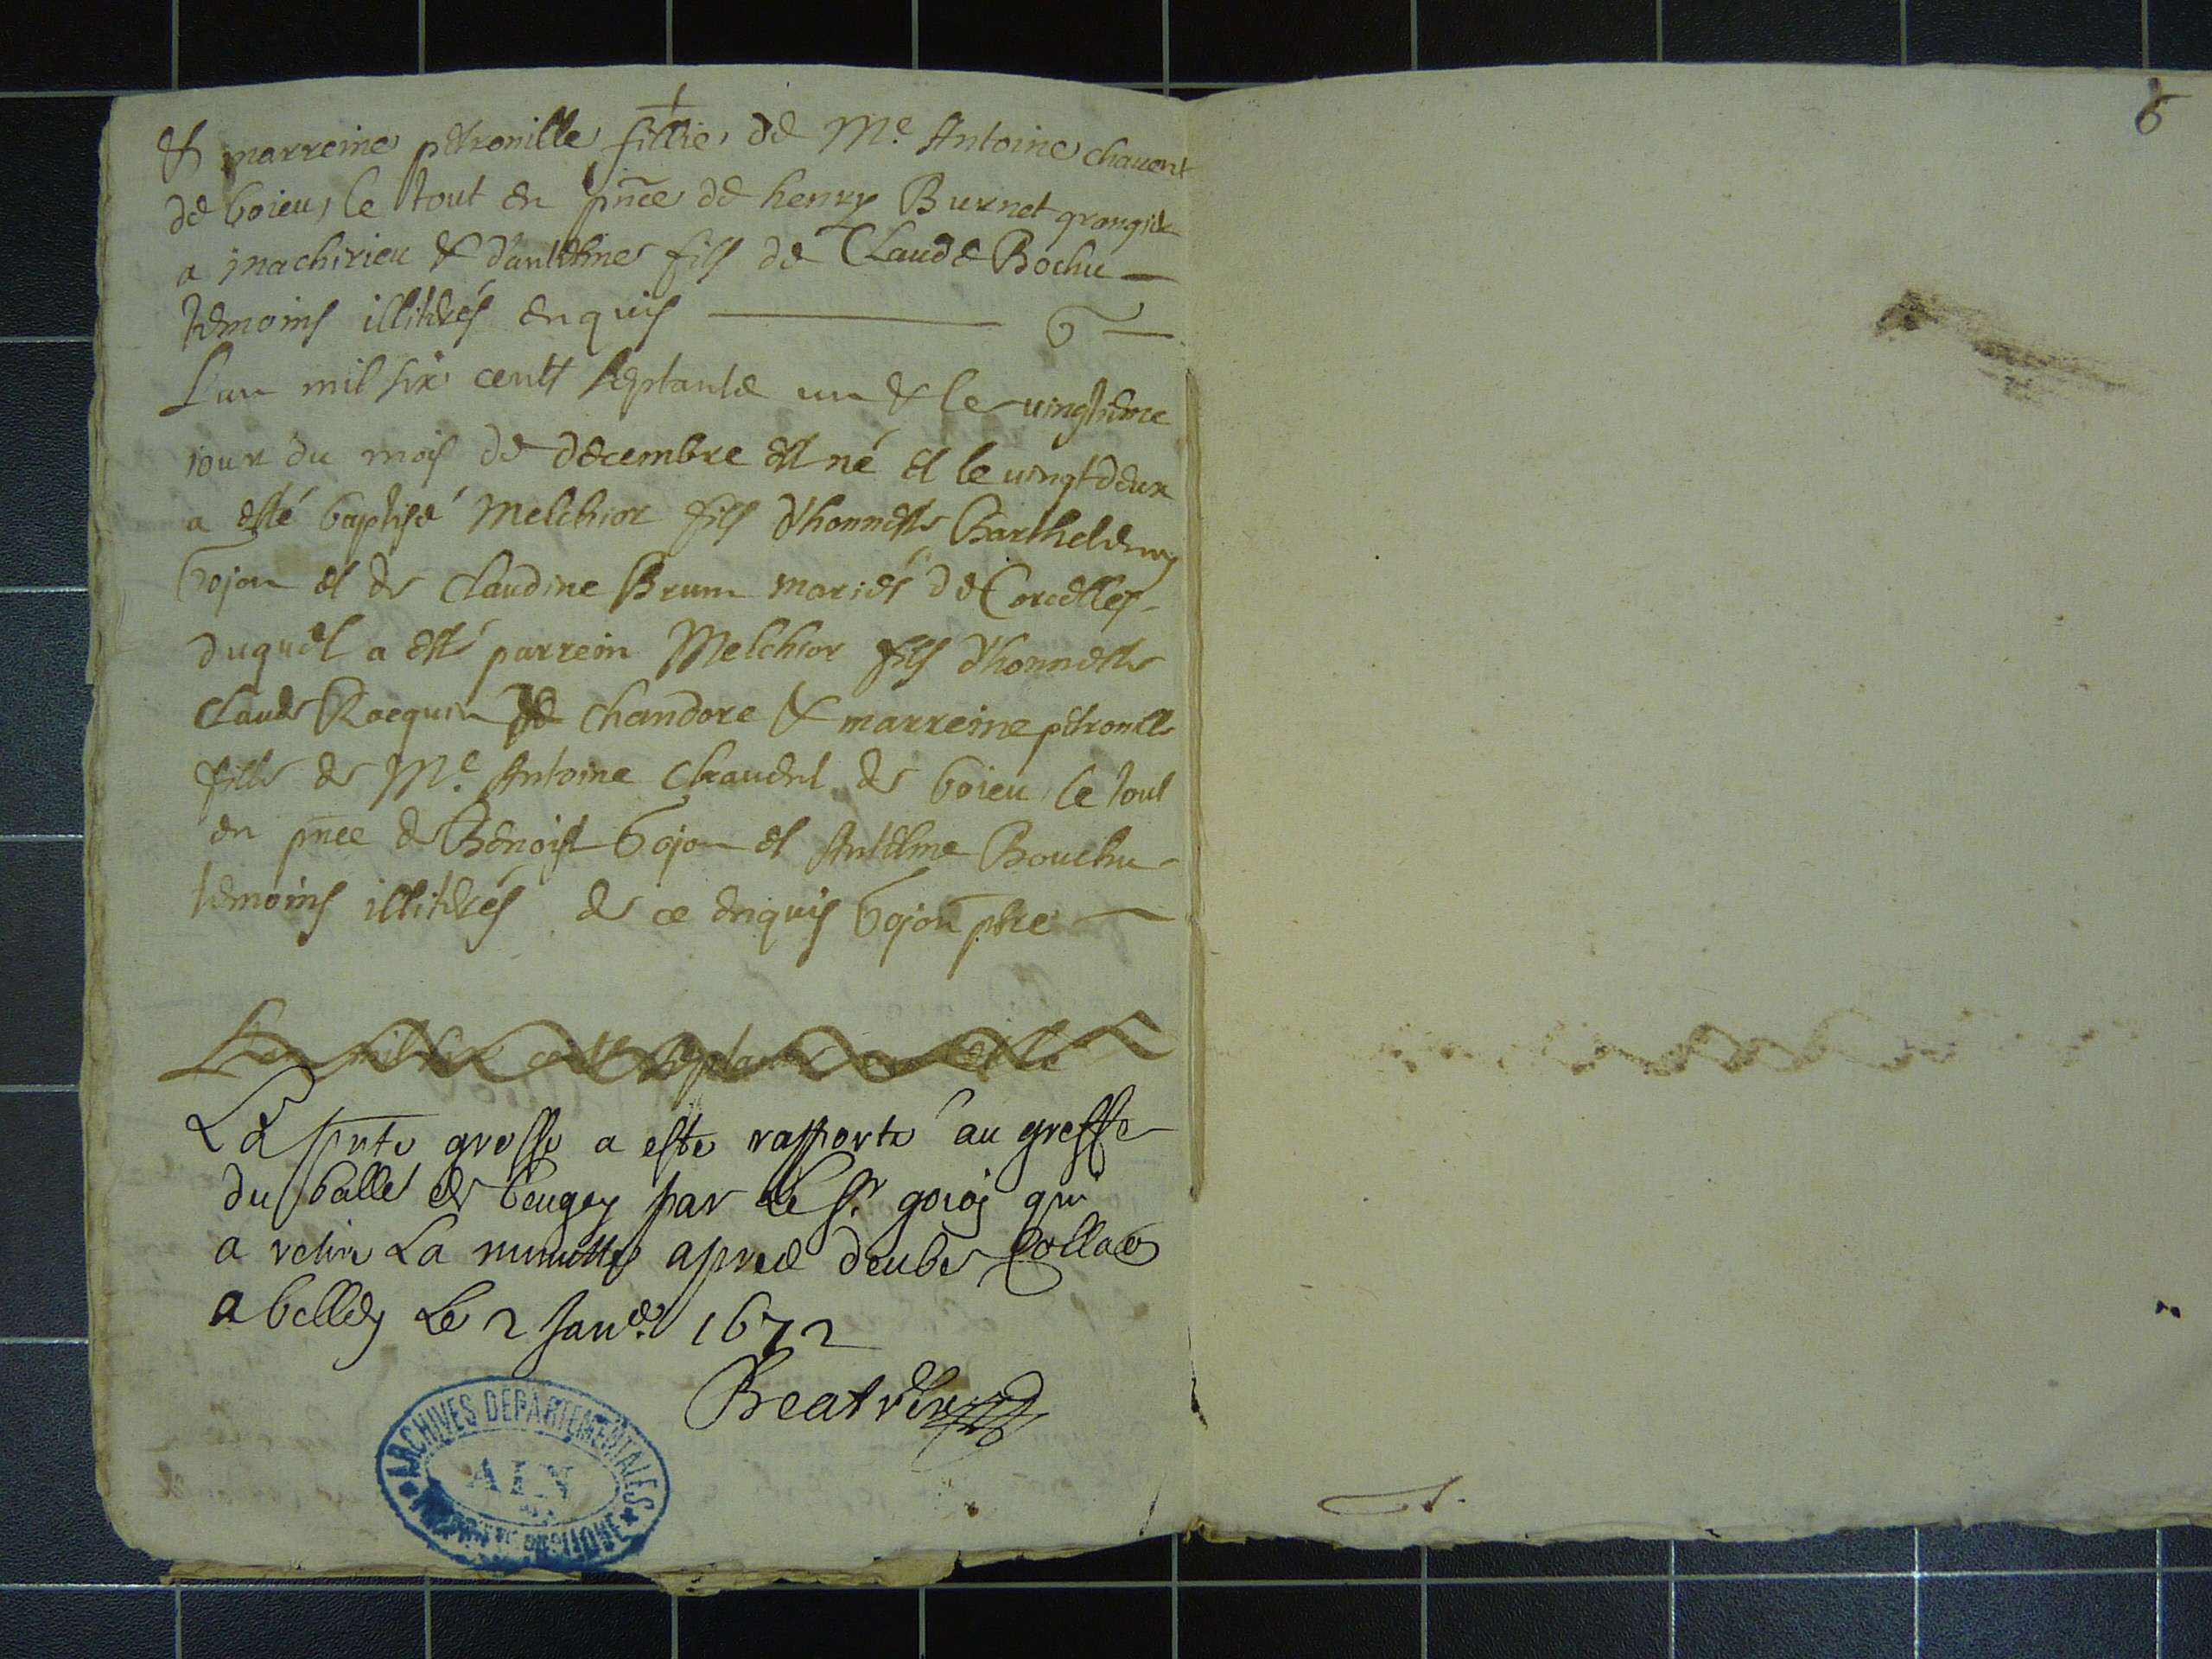 & marreine petronille fillie de Me. Antoine chauent
de boieu, le tout en pnce de henry Burnet grangier
a machirieu & d'antelme fils de Claude Bochu
temoins illiterés enquis
L'an mil six centt septante un & le vingtieme
iour du mois de decembre est né et le vingt deux
a esté baptisé Melchior fils d'honneste Barthelemy
Gojon et de Claudine Brun mariés de Corcelles
duquel a esté parrein Melchior fils d'honneste
Claude Racquin de chandore & marreine petronille
fille de Me. Antoine Chauent de boieu le tout
en pnce de Benoist Gojon et Antelme Bouchu
temoins illiterés de ce enquis Gojon ptre
L'an mil six centt septante un et le
La pnte grosse a este rapporté au greffe
du balle de beugey par le Sr. goioj qui
a retiré La minutte apres deube Collaon
a belley Le 2 Janer. 1672
Beatrix
ARCHIVES DEPARTEMENTALES
AIN
6